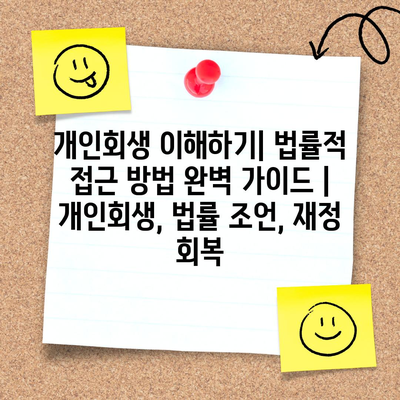 개인회생 이해하기| 법률적
접근 방법 완벽 가이드 |
개인회생, 법률 조언, 재정
회복